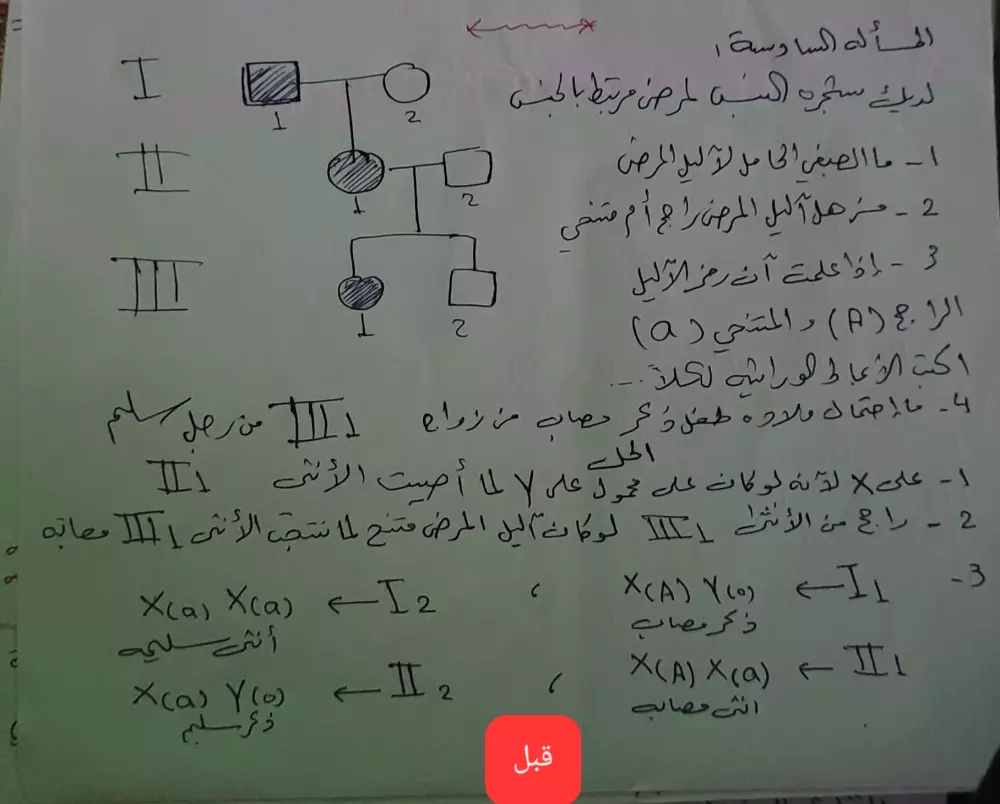 المسألة السادسة:
لديك شجره النسب لمرض مرتبط بالجنس
1- ما الصبغي الحامل لآليل المرض
2- هل آليل المرض راجح أم متنحي
3- إذا علمت أن رمز الآليل
الراجح (A) والمتنحي (a)
اكتب الأنماط الوراثيه لكلاً ...
4- ما احتمال ولاده طفل ذكر مصاب من زواج III1 من رجل سليم
I
1
2
II
1
2
III
1
2
الحل
1- على X لآنه لو كان محمول على Y لما أصيبت الأنثى II1
2- راجح من الأنثى III1 لو كان آليل المرض متنح لما نتجت الأنثى III1 مصابه
3- I1 ← X(A) Y(0) ، I2 ← X(a) X(a)
ذكر مصاب أنثى سليمه
II1 ← X(A) X(a) ، II2 ← X(a) Y(0)
انثى مصابه ذكر سليم
قبل